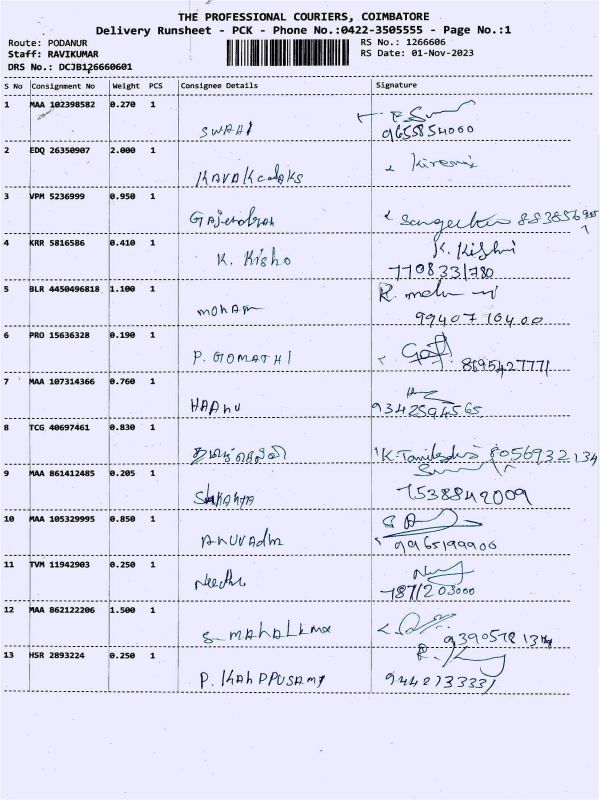 THE PROFESSIONAL COURIERS, COIMBATORE
Delivery Runsheet - PCK - Phone No.:0422-3505555 - Page No.:1
Route: PODANUR RS No.: 1266606
Staff: RAVIKUMAR RS Date: 01-Nov-2023
DRS No.: DCJB126660601
S No Consignment No Weight PCS Consignee Details Signature
1 MAA 102398582 0.270 1
SWAHI 9655854000
2 EDQ 26350907 2.000 1
3 VPM 5236999 0.950 1
4 KRR 5816586 0.410 1 K. Kishi
K. Kisho 7708331780
5 BLR 4450496818 1.100 1
MOHAM 9940710400
6 PRO 15636328 0.190 1
P. GOMATHI 8695427771
7 MAA 107314366 0.760 1
9342594565
8 TCG 40697461 0.830 1
தமிழ்செல்வி 8056932134
9 MAA 861412485 0.205 1
7538842009
10 MAA 105329995 0.850 1
9965199900
11 TVM 11942903 0.250 1
7871203000
12 MAA 862122206 1.500 1
13 HSR 2893224 0.250 1
9442733331